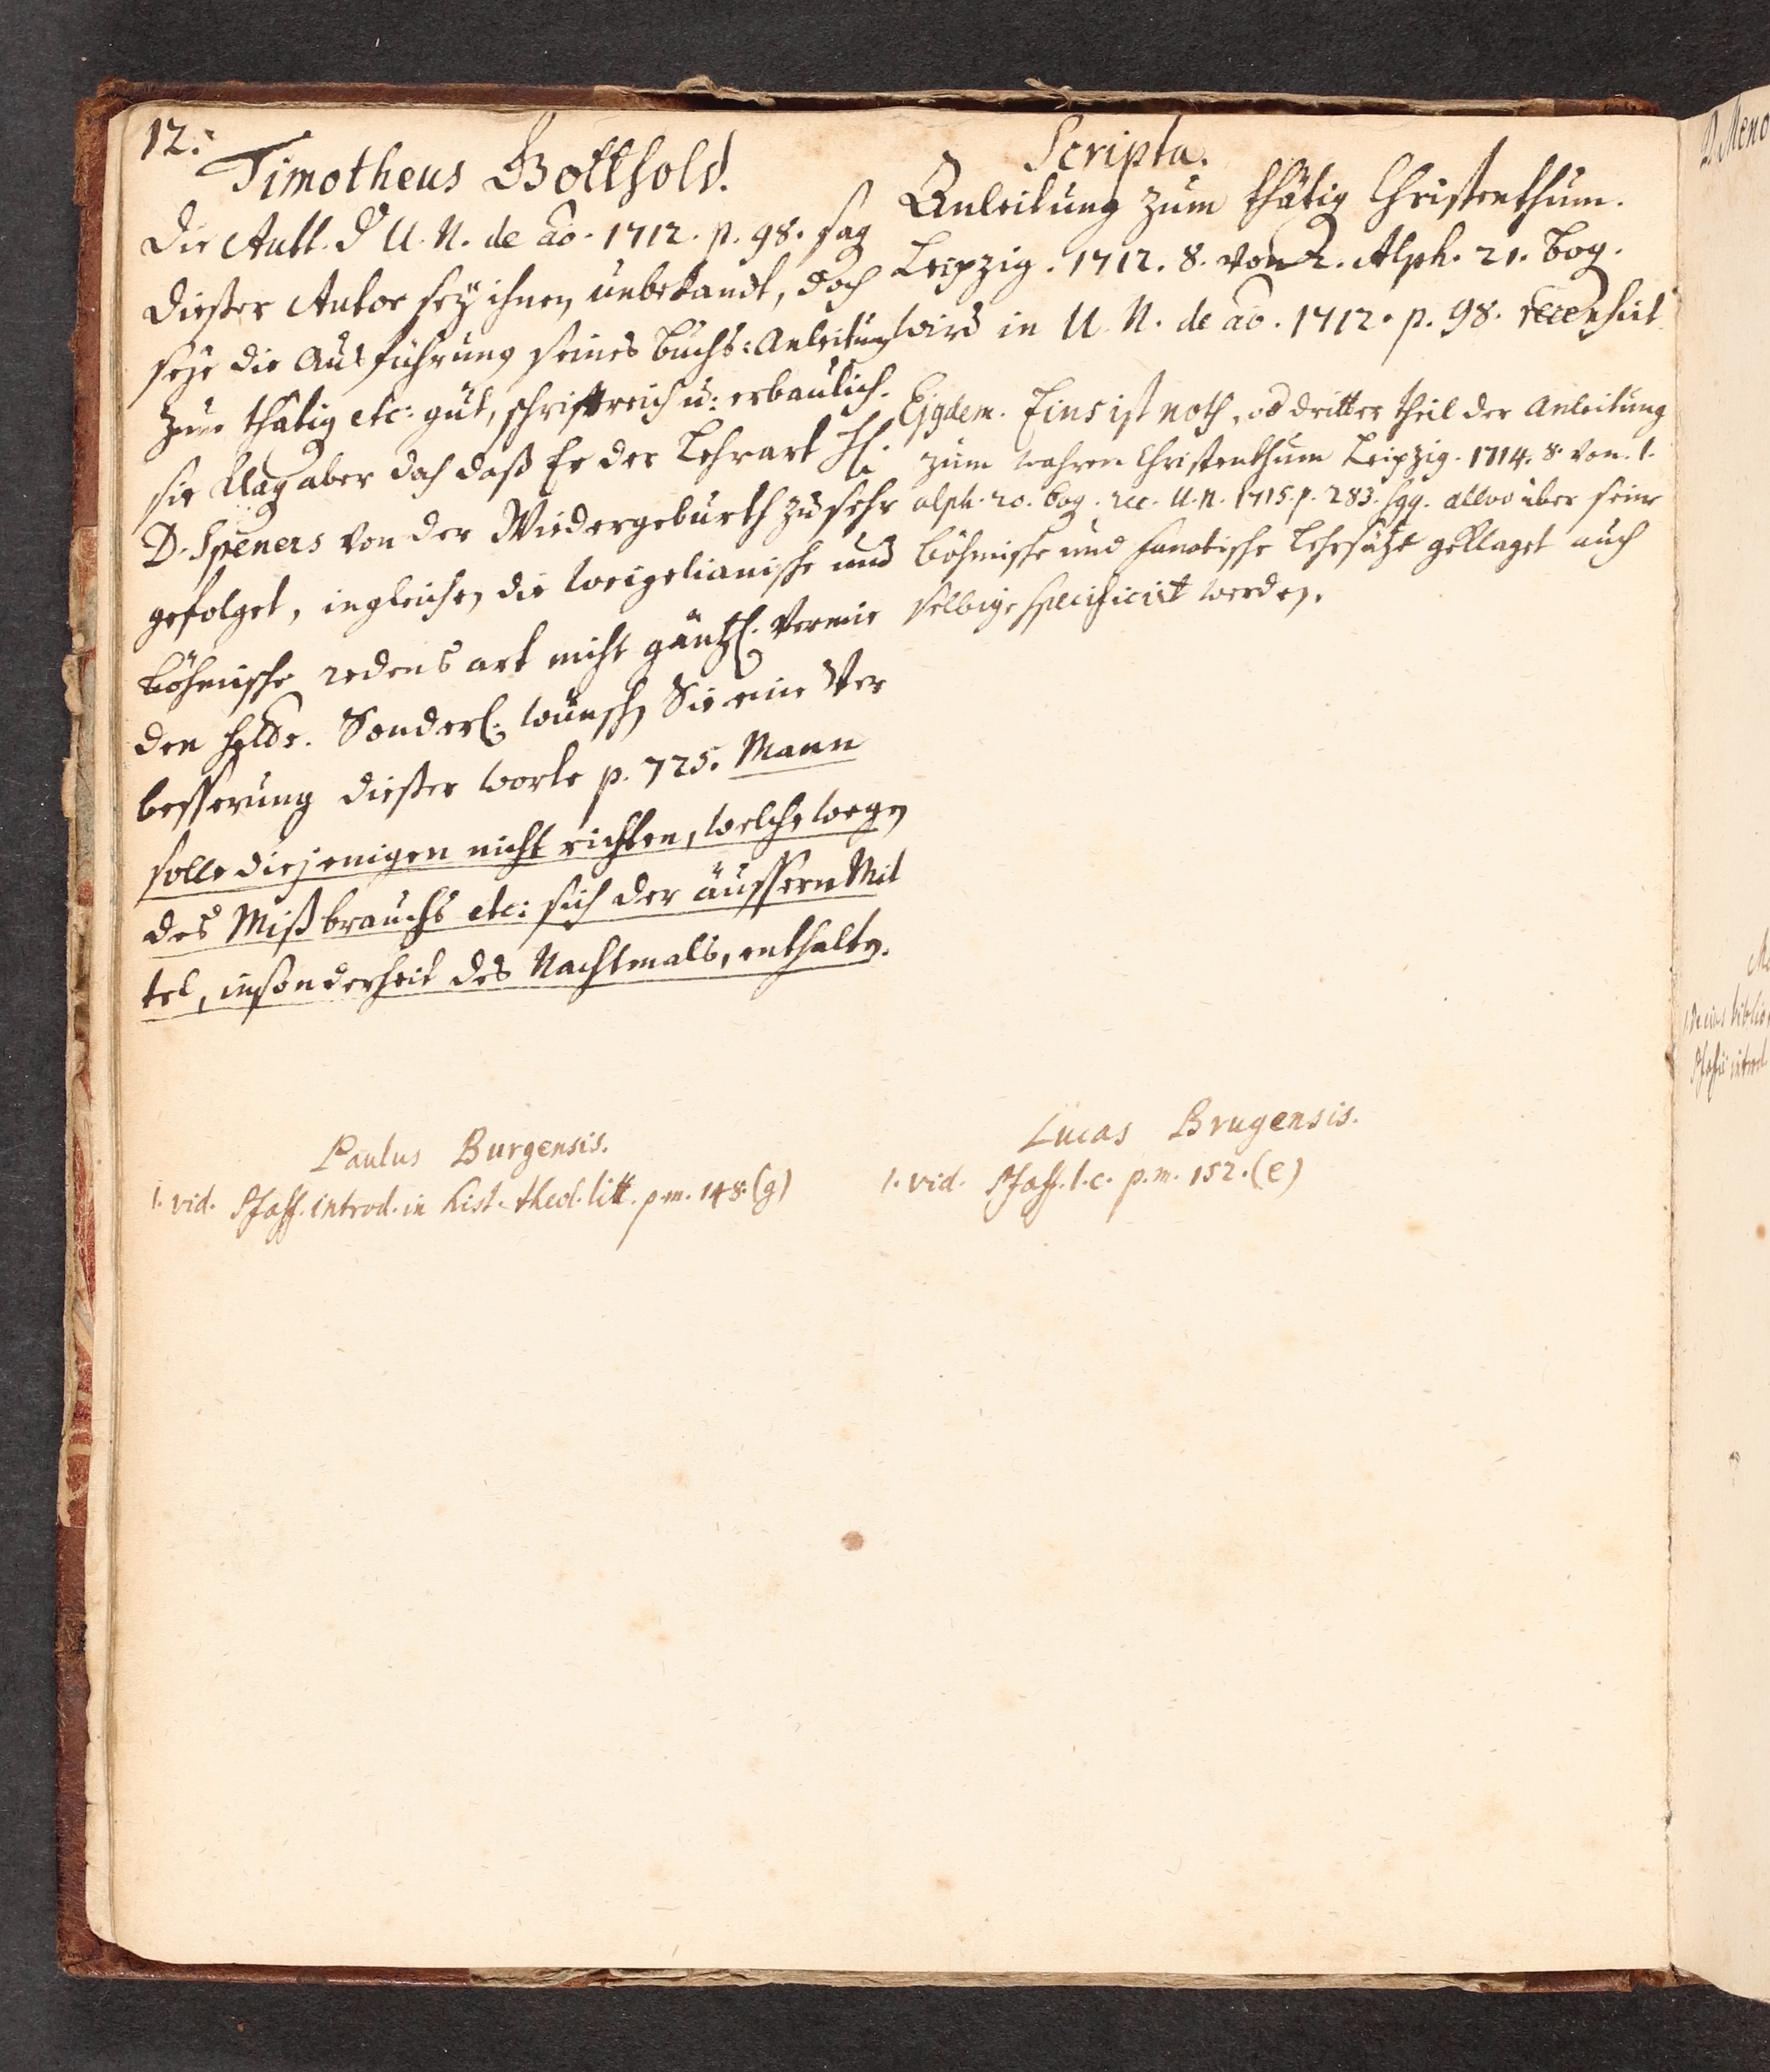 12.
Timotheus Gotthold.
Die Autt. d U. N. de ao. 1712. p. 98. sag
dießer Autor sey ihnen unbekandt, doch
seye die Ausführung seines Buchs: Anleitung
zum thätig etc: gut, schriftreich u: erbaulich.
sie klag aber doch daß Er der Lehrart H.
D. Speners von der Wiedergeburth zu sehr
gefolget, ingleichen die weigelianische und
böhmische redens art nicht gäntzl. vermie
den hätte. Sonderl. wünsch Sie eine Ver
besserung dießer worte p. 725. Mann
solle diejenigen nicht richten, welche wegen
des Mißbrauchs etc: sich der äussern Mit
tel, insonderheit des Nachtmals, enthalten.
Scripta.
Anleitung zum thätig Christenthum.
Leipzig. 1712. 8. von 2. Alph. 21. Bog.
wird in U. N. de ao. 1712. p. 98. recensirt
Ejqdem. Eins ist noth, od dritter theil der Anleitung
zum wahren Christenthum Leipzig. 1714. 8. von. 1.
alph. 20. bog. rec. U. N. 1715. p. 283. sqq. allwo über seine
böhmische und fanatische Lehrsätze geklaget auch
selbige specificirt werden.
Paulus Burgensis.
1. vid. Pfaff. introd. in hist. theol. litt. p. m. 148. (g)
Lucas Brugensis.
1. vid. Pfaff. l. c. p. m. 152. (e)